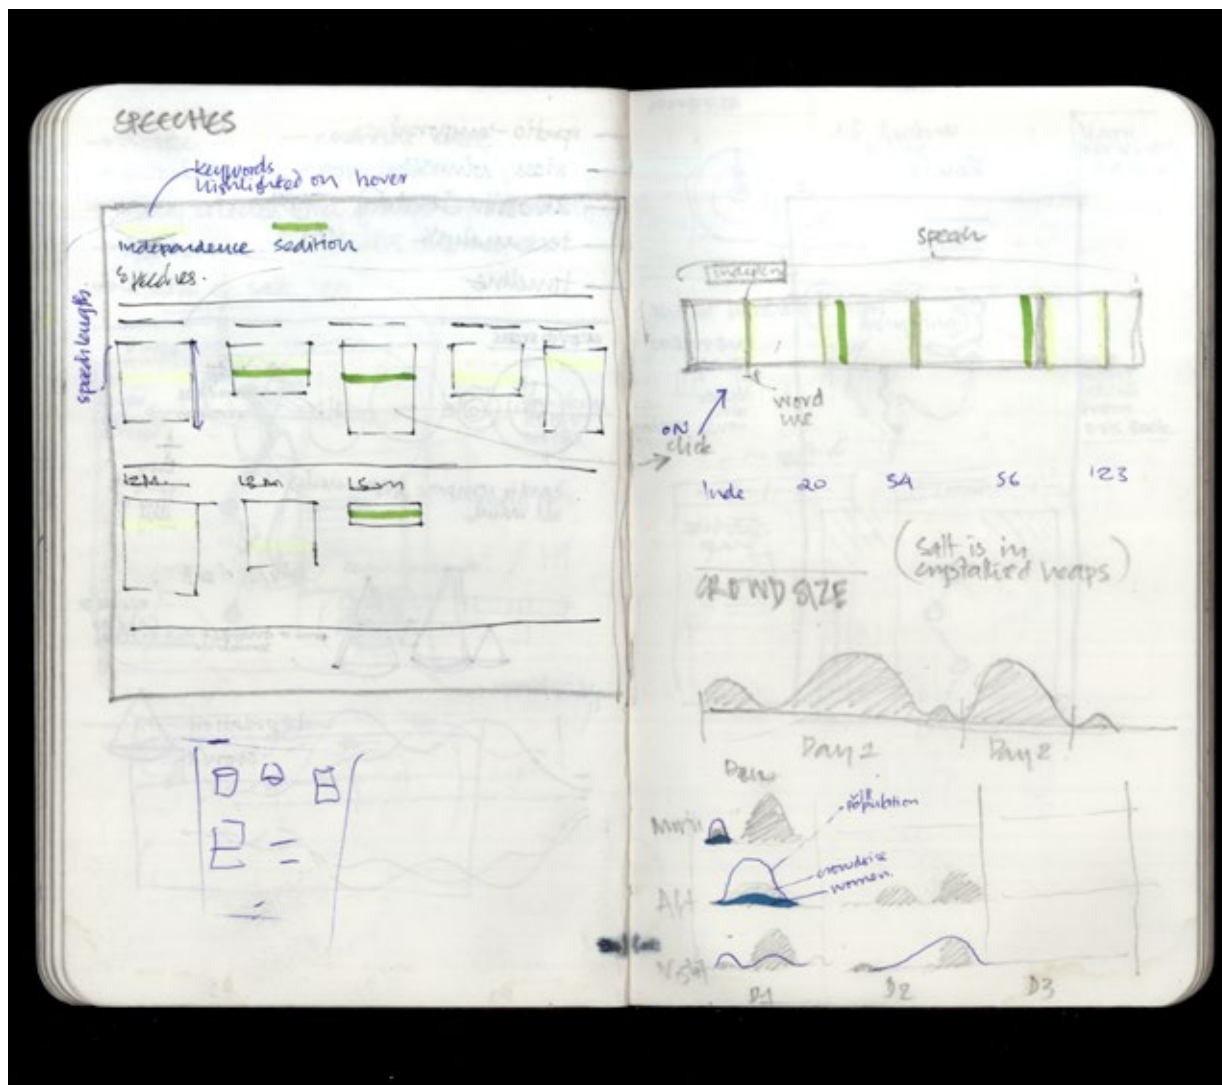 SPEECHES
keywords
highlighted on hover
independence sedition
Speeches.
speech lengths
12M. 13 M 15 M
speech
indepen
word
use
ON
click
Inde 20 54 56 123
(Salt is in
crystalized heaps)
CROWD SIZE
Day 1 Day 2
vill
population
crowdsize
women
Aft
D1 D2 D3